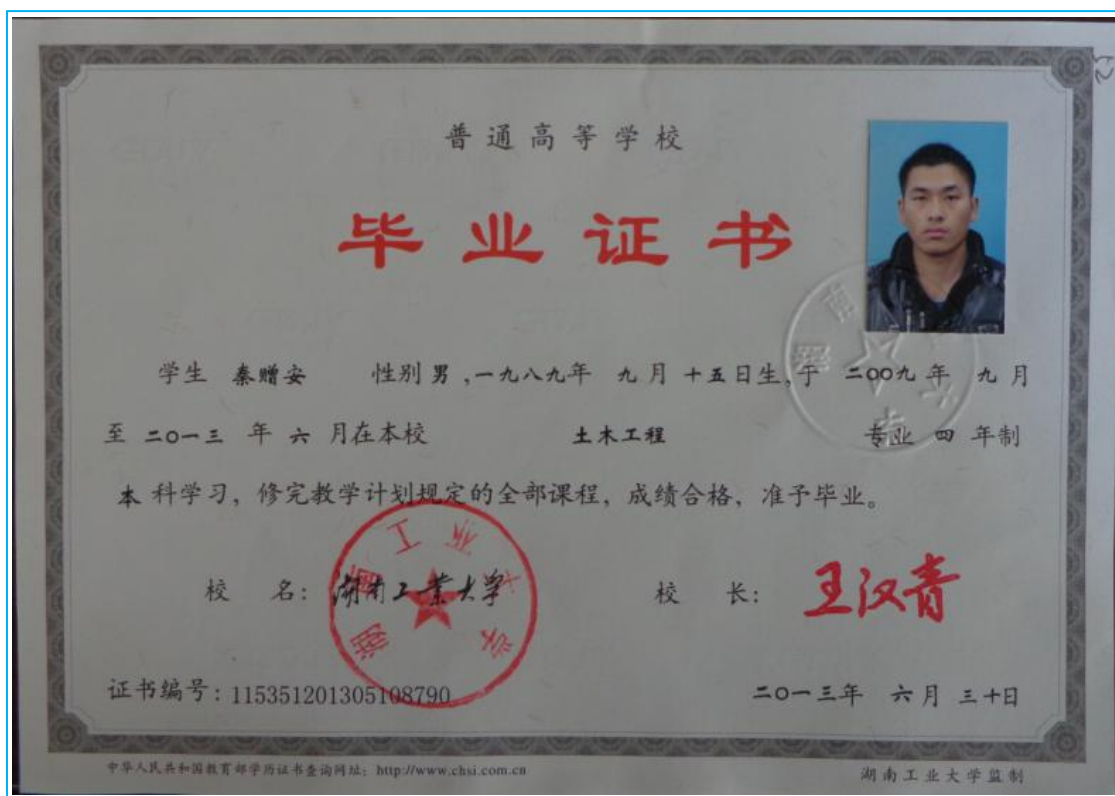 普通高等学校
毕业证书
学生 秦赠安 性别 男,一九八九年 九月 十五日生,于 二〇〇九年 九月
至 二〇一三 年 六 月在本校 土木工程 专业 四 年制
本科学习，修完教学计划规定的全部课程，成绩合格，准予毕业。
校 名：湖南工业大学 校 长：王汉青
证书编号：115351201305108790 二〇一三年 六月 三十日
中华人民共和国教育部学历证书查询网址：http://www.chsi.com.cn 湖南工业大学监制